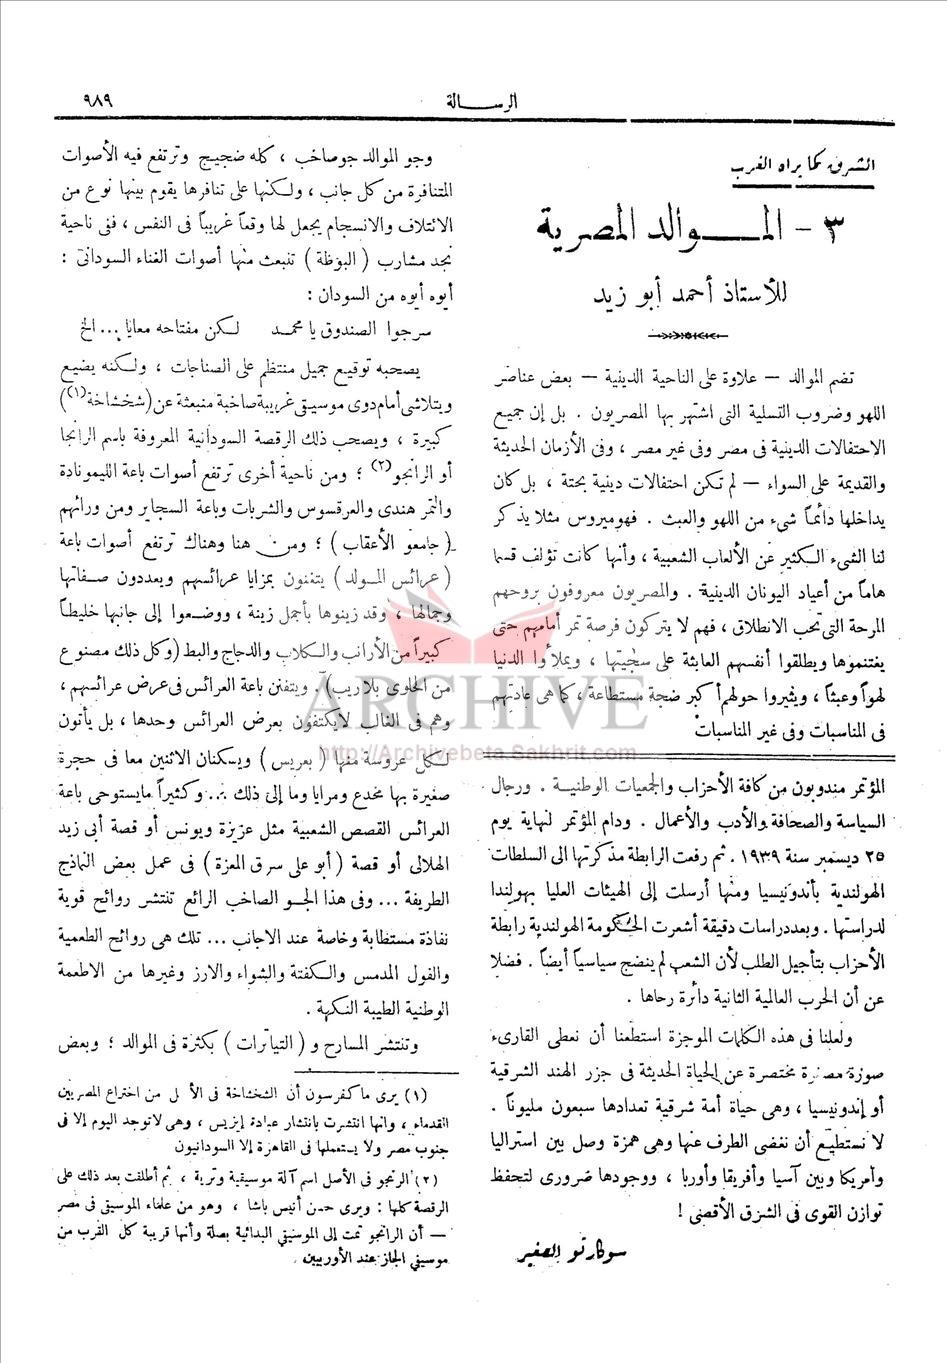 الرسالة
٩٨٩
الشرق كما يراه الغرب
٣ - الموالد المصرية
للأستاذ أحمد أبو زيد
تضم الموالد — علاوة على الناحية الدينية — بعض عناصر
اللهو وضروب التسلية التى اشتهر بها المصريون . بل إن جميع
الاحتفالات الدينية فى مصر وفى غير مصر ، وفى الأزمان الحديثة
والقديمة على السواء — لم تكن احتفالات دينية بحتة ، بل كان
يداخلها دائماً شىء من اللهو والعبث . فهوميروس مثلا يذكر
لنا الشىء الكثير عن الألعاب الشعبية ، وأنها كانت تؤلف قسما
هاماً من أعياد اليونان الدينية . والمصريون معروفون بروحهم
المرحة التى تحب الانطلاق ، فهم لا يتركون فرصة تمر أمامهم حتى
يغتنموها ويطلقوا أنفسهم العابثة على سجيتها ، ويملأوا الدنيا
لهواً وعبثاً ، ويثيروا حولهم أكبر ضجة مستطاعة ، كما هى عادتهم
فى المناسبات وفى غير المناسبات
المؤتمر مندوبون من كافة الأحزاب والجمعيات الوطنية . ورجال
السياسة والصحافة والأدب والأعمال . ودام المؤتمر لنهاية يوم
٢٥ ديسمبر سنة ١٩٣٩ . ثم رفعت الرابطة مذكرتها الى السلطات
الهولندية بأندونيسيا ومنها أرسلت إلى الهيئات العليا بهولندا
لدراستها . وبعد دراسات دقيقة أشعرت الحكومة الهولندية رابطة
الأحزاب بتأجيل الطلب لأن الشعب لم ينضج سياسياً أيضاً . فضلا
عن أن الحرب العالمية الثانية دائرة رحاها .
ولعلنا فى هذه الكلمات الموجزة استطعنا أن نعطى القارىء
صورة مصغرة مختصرة عن الحياة الحديثة فى جزر الهند الشرقية
أو إندونيسيا ، وهى حياة أمة شرقية تعدادها سبعون مليوناً .
لا نستطيع أن نغضى الطرف عنها وهى همزة وصل بين استراليا
وأمريكا وبين آسيا وأفريقا وأوربا ، ووجودها ضرورى لتحفظ
توازن القوى فى الشرق الأقصى !
سوكارنو الصغير
وجو الموالد جو صاخب ، كله ضجيج وترتفع فيه الأصوات
المتنافرة من كل جانب ، ولكنها على تنافرها يقوم بينها نوع من
الائتلاف والانسجام يجعل لها وقعاً غريباً فى النفس ، ففى ناحية
نجد مشارب ( البوظة ) تنبعث منها أصوات الغناء السودانى :
أيوه أيوه من السودان :
سرجوا الصندوق يا محمد لكن مفتاحه معايا ... الخ
يصحبه توقيع جميل منتظم على الصناجات ، ولكنه يضيع
ويتلاشى أمام دوى موسيقى غريبة صاخبة منبعثة عن (شخشاخة (١))
كبيرة ، ويصحب ذلك الرقصة السودانية المعروفة باسم الرانجا
أو الرانجو (٢) ؛ ومن ناحية أخرى ترتفع أصوات باعة الليمونادة
والتمر هندى والعرقسوس والشربات وباعة السجاير ومن ورائهم
( جامعو الأعقاب ) ؛ ومن هنا وهناك ترتفع أصوات باعة
( عرائس المولد ) يتغنون بمزايا عرائسهم ويعددون صفاتها
وجمالها ، وقد زينوها بأجمل زينة ، ووضعوا إلى جانبها خليطاً
كبيراً من الأرانب والكلاب والدجاج والبط (وكل ذلك مصنوع
من الحلوى بلا ريب ) . ويتفنن باعة العرائس فى عرض عرائسهم ،
وهم فى الغالب لا يكتفون بعرض العرائس وحدها ، بل يأتون
لكل عروسة منها ( بعريس ) ويسكنان الاثنين معا فى حجرة
صغيرة بها مخدع ومرايا وما إلى ذلك ... وكثيراً ما يستوحى باعة
العرائس القصص الشعبية مثل عزيزة ويونس أو قصة أبى زيد
الهلالى أو قصة ( أبو على سرق المعزة ) فى عمل بعض النماذج
الطريفة ... وفى هذا الجو الصاخب الرائع تنتشر روائح قوية
نفاذة مستطابة وخاصة عند الاجانب ... تلك هى روائح الطعمية
والفول المدمس والكفتة والشواء والارز وغيرها من الاطعمة
الوطنية الطيبة النكهة .
وتنتشر المسارح و ( التياترات ) بكثرة فى الموالد ؛ وبعض
(١) يرى ماكفرسون أن الشخشاخة فى الأ لى من اختراع المصريين
القدماء ، وانها انتشرت بانتشار عبادة إيزيس ، وهى لا توجد اليوم إلا فى
جنوب مصر ولا يستعملها فى القاهرة إلا السودانيون
(٢) الرنجو فى الأصل اسم آلة موسيقية وترية ، ثم أطلقت بعد ذلك على
الرقصة كلها : ويرى حسن أنيس باشا ، وهو من علماء الموسيقى فى مصر
— أن الرانجو تمت إلى الموسيقى البدائية بصلة وأنها قريبة كل القرب من
موسيقى الجاز عند الأوربيين .
ARCHIVE
http://Archivebeta.Sakhrit.com